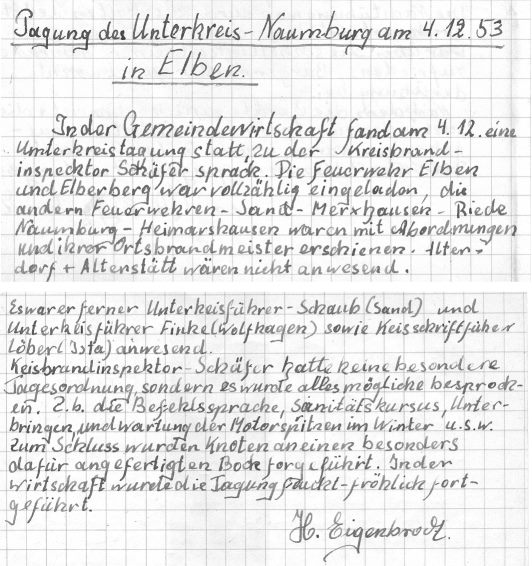 Tagung des Unterkreis-Naumburg am 4.12.53
in Elben.
In der Gemeindewirtschaft fand am 4.12. eine
Unterkreistagung statt, zu der Kreisbrand-
inspecktor Schäfer sprach. Die Feuerwehr Elben
und Elberberg war vollzählig eingeladen, die
andern Feuerwehren - Sand - Merxhausen - Riede
Naumburg - Heimarshausen waren mit Abordnungen
und ihrer Ortsbrandmeister erschienen. Alten-
dorf + Altenstätt wären nicht anwesend.
Es war er ferner Unterkeisführer - Schaub (Sand) und
Unterkeisführer Finke (Wolfhagen) sowie Keisschriftfüher
Löber (Ista) anwesend.
Keisbrandinspektor - Schäfer hatte keine besondere
Tagesordnung, sondern es wurde alles mögliche besprock-
en. Z.b. die Befehlssprache, Sanitätskursus, Unter-
bringen, und wartung der Motorspitzen im Winter u.s.w.
Zum Schluss wurden Knoten an einen besonders
dafür angefertigten Bock forgeführt. In der
Wirtschaft wurde die Tagung feucht-fröhlich fort-
geführt.
H. Eigenbrodt.